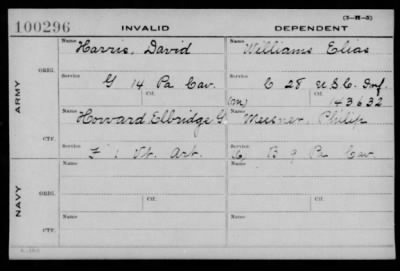 (3-H-5)
100296 INVALID DEPENDENT
Name Name
Harris, David Williams Elias
ORIG. Service Service
G 14 Pa Cav. C 28 U.S.C. Inf.
Ctf. Ctf.
(m) 143632
ARMY
Name Name
Howard Elbridge G. Messner, Philip
CTF. Service Service
F 1 Vt. Art. B 9 Pa Cav.
Name Name
ORIG. Service Service
Ctf. Ctf.
NAVY
Name Name
CTF. Service Service